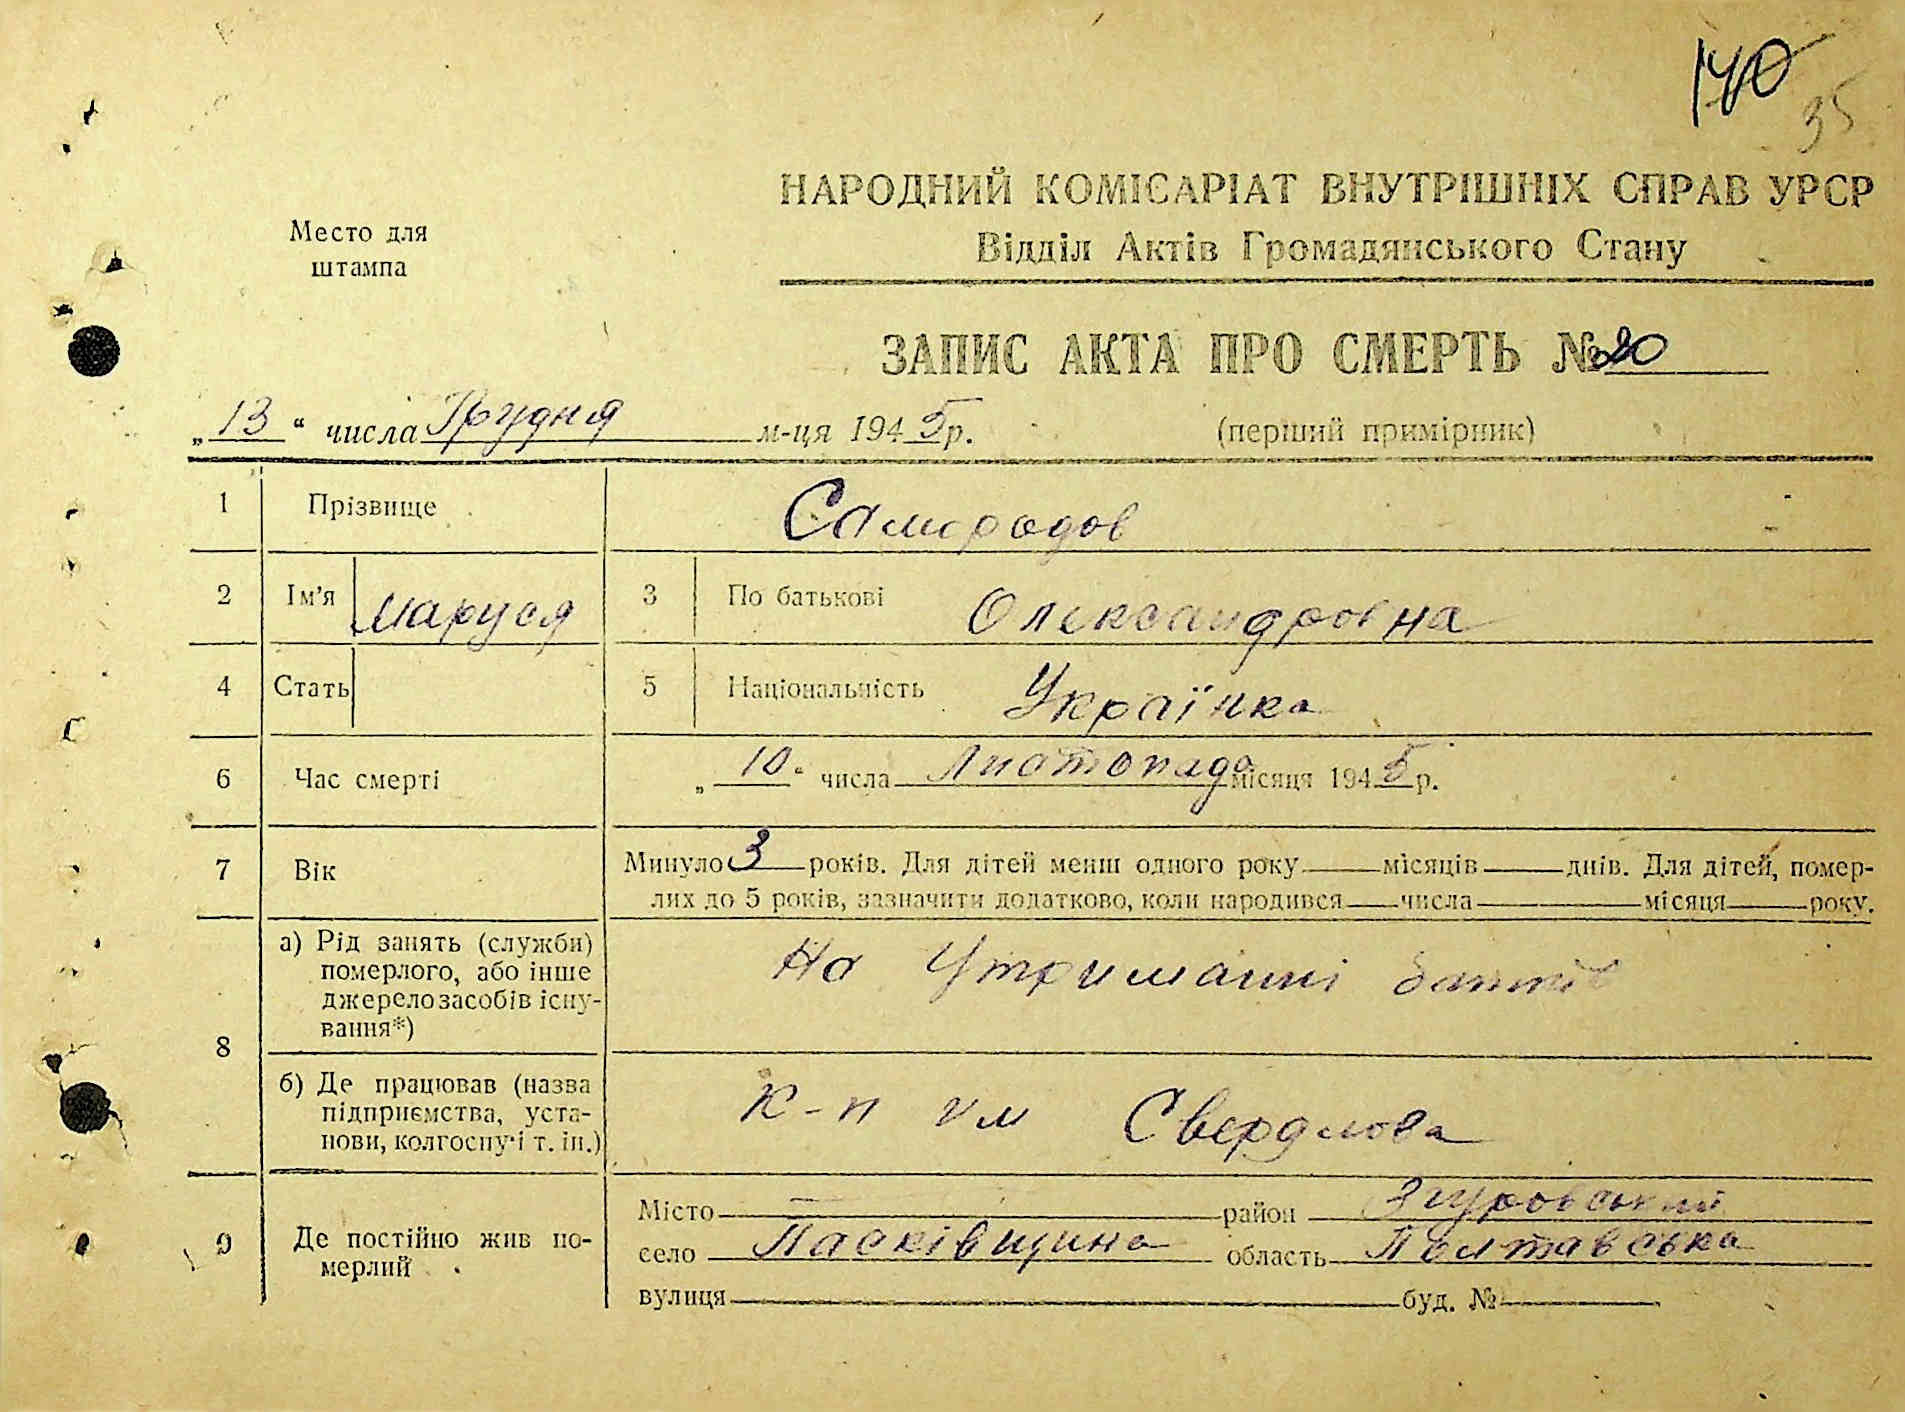 140
35
Место для
штампа
НАРОДНИЙ КОМІСАРІАТ ВНУТРІШНІХ СПРАВ УРСР
Відділ Актів Громадянського Стану
ЗАПИС АКТА ПРО СМЕРТЬ № 20
„13“ числа Грудня м-ця 1945 р. (перший примірник)
1 Прізвище Самородов
2 Ім'я Маруся 3 По батькові Олександровна
4 Стать 5 Національність Українка
6 Час смерті „10“ числа Листопада місяця 1945 р.
7 Вік Минуло 3 років. Для дітей менш одного року місяців днів. Для дітей, помер-
лих до 5 років, зазначити додатково, коли народився числа місяця року.
8 а) Рід занять (служби) На Утриманні батьків
померлого, або інше
джерело засобів існу-
вання*)
б) Де працював (назва К-п им Свердлова
підприємства, уста-
нови, колгоспу і т. ін.)
9 Де постійно жив по-
мерлий
Місто — район Згуровський
село Пасківщина область Полтавська
вулиця буд. №